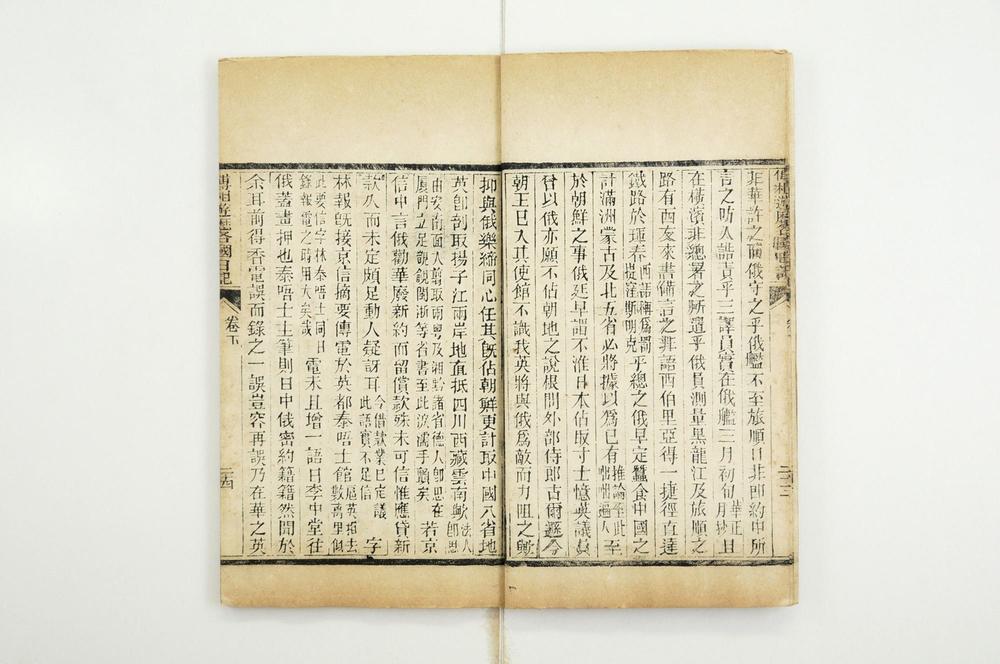 非華許之而俄守之乎俄艦不至旅順口非即約中所
言之昉人詰責乎三譯員實在俄艦三月初旬華正月杪且
在橫濱非總署之所遣乎俄員測量黑龍江及旅順之
路有西友來書備言之非語西伯里亞得一捷徑直達
鐵路於琿春乎總之俄早定蠶食中國之
計滿洲蒙古及北五省必將據以為已有推論至此惴惴過人至
於朝鮮之事俄廷早謂不准日本佔取寸土憶英議員
曾以俄亦願不佔朝地之說根問外部侍郎古爾遜今
朝王已入其使館不識我英將與俄為敵而力阻之歟
抑與俄樂締同心任其既佔朝鮮更計取中國八省地
英即剖取揚子江兩岸地直抵四川西藏雲南歟法人即思
由安南面入剪取兩粵及湘黔諸省德人即思在
廈門立足觀覦閩浙等省書至此淚濡手顫矣若京
信中言俄勸華廢新約而留償款殊未可信惟應貸新
款久而未定頗足動人疑訝耳今借款業已定議此語實不足信字
林報既接京信摘要傳電於英都泰唔士館數萬里俄
此要信字林泰唔士同日
錄報電之時用大矣哉電末且增一語日李中堂往
俄蓋畫押也泰唔士主筆則日中俄密約籍籍然聞於
余耳前得香電誤而錄之一誤豈容再誤乃在華之英
傅相遊歷各國日記
卷下
三四